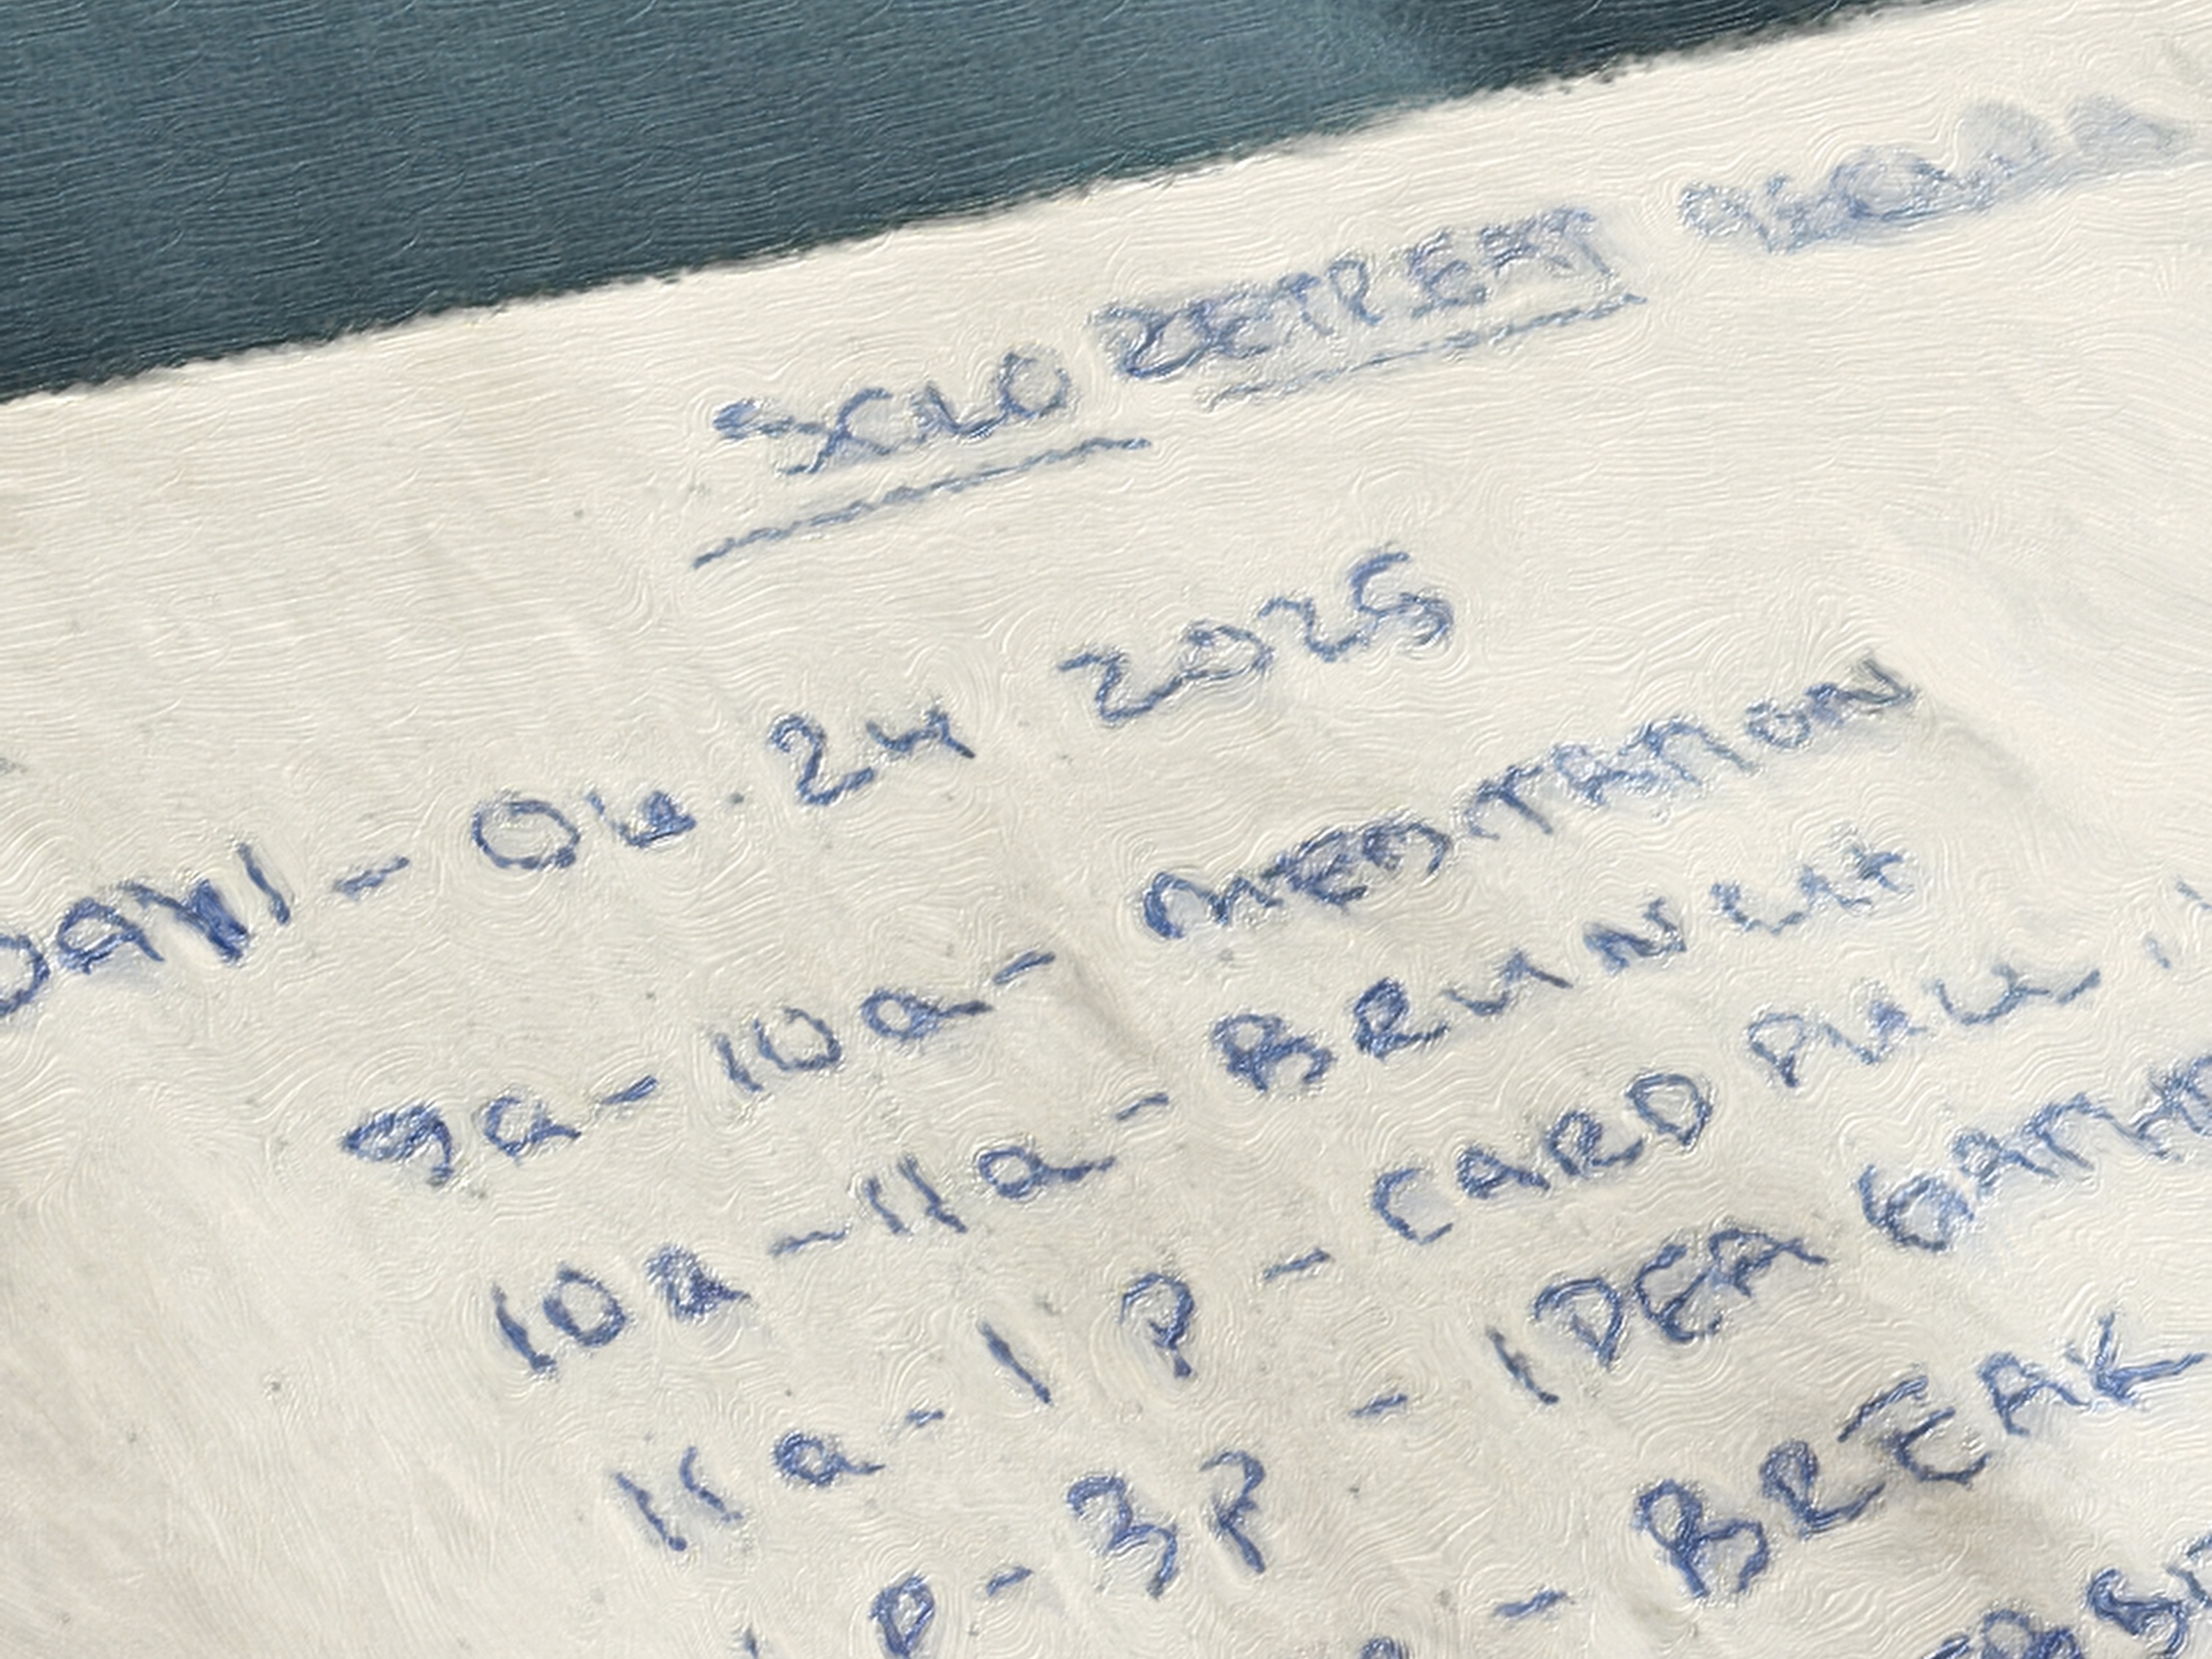 SOLO RETREAT
DAY 1 - 04.24 2025
9a - 10a - MEDITATION
10a - 11a - BRUNCH
11a - 1P - CARD PULL
1P - 3P - IDEA
- BREAK